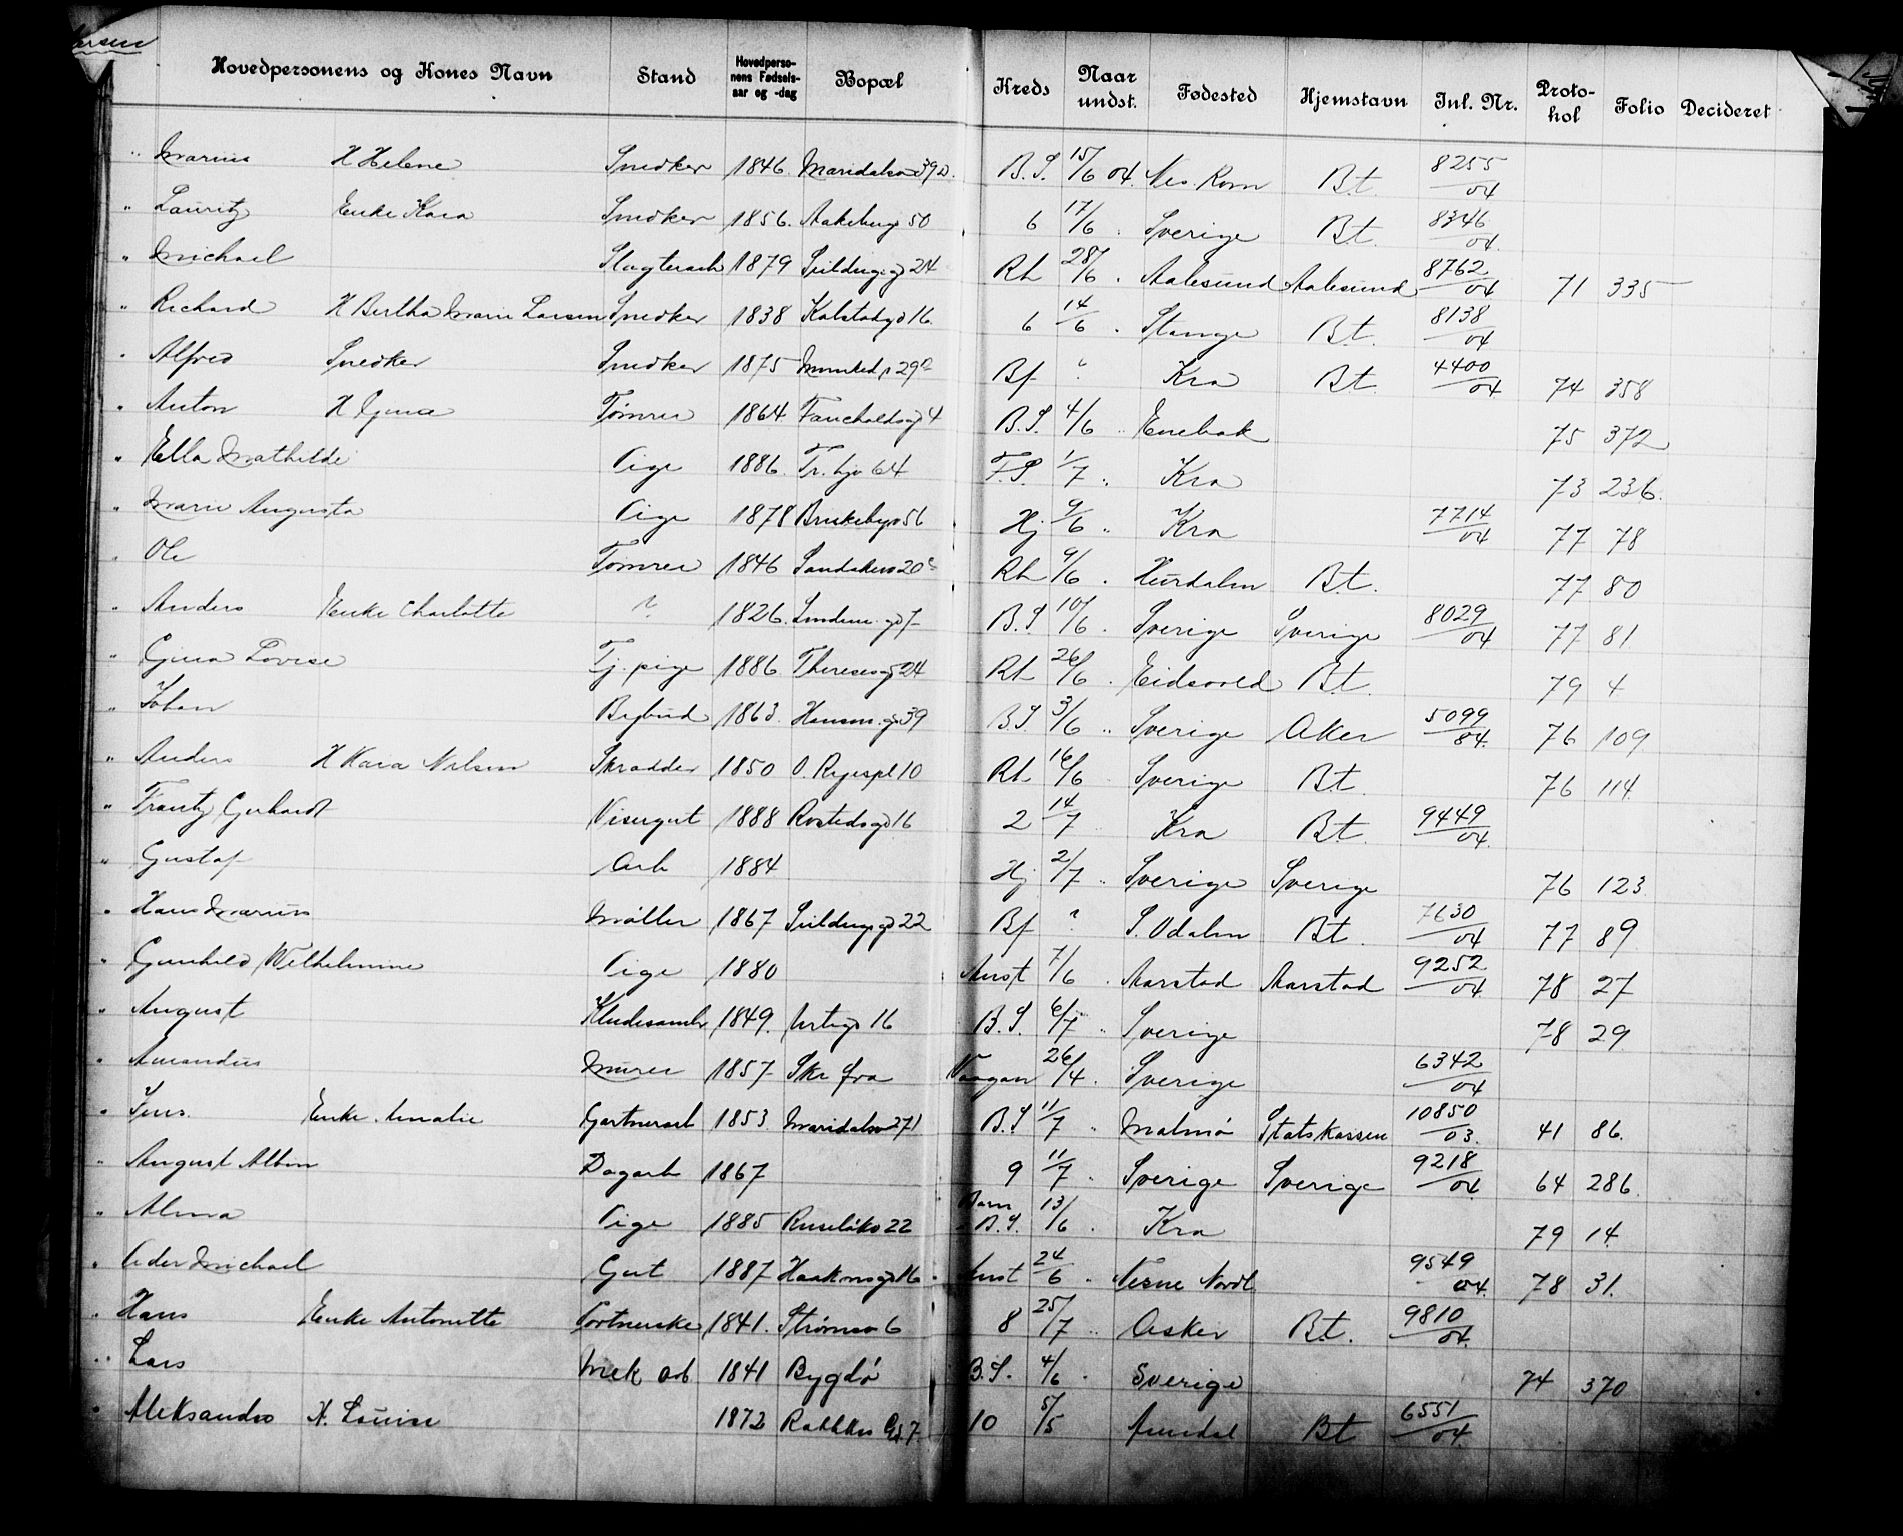 Hovedpersonens og Kones Navn Stand Hovedpersonens Fødselsaar og -dag Bopæl Kreds Naar undst. Fødested Hjemstavn Inl. Nr. Protohol Folio Decideret
" Marius H Helene Snedker 1846 Maridalsv 39 D. B.S. 15/6 04. Nes Rom Bt. 8255/04
" Lauritz Enke Kaia Snedker 1856. Aakebergv 50 6 17/6 . Sverige Bt. 8346/04
" Michael Slagterarb 1879 24 Rh 28/6 . Aalesund Aalesund 8762/04 71 335
" Richard H Bertha Marie Larsen Snedker 1838 Kalstadgd 16. 6 14/6 . Stange Bt. 8138/04
" Alfred Snedker Snedker 1875 29 Bf ? Kra Bt. 4400/04 74 358
" Anton H Gina Tømrer 1864 Faucholdsgd 4 B.S. 4/6 " Enebak 75 372
" Ella Mathilde Pige 1886. Tr.hjv 64 F.S. 1/7 " Kra 73 236.
" Marie Augusta Pige 1878 56 Hj 9/6 " Kra 7714/04 77 78
" Ole Tømrer 1846 Sandakerv 20 c Rh 9/6 . Hurdalen Bt. 77 80
" Anders Enke Charlotte ? 1826. B.S 10/6 . Sverige Sverige 8029/04 77 81
" Gina Lovise Tj. pige 1886 Theresesgd 24 Rh 26/6 . Eidsvold Bt. 79 4
" Johan Bybud 1863. Hausm. gd 39 B.S 3/6 " Sverige Aker 5099/84. 76 109
" Anders H Kaia Nilsen Skrædder 1850 O. Ryespl 10 Rh 16/6 . Sverige Bt. 76 114
" Frantz Gerhardt Visergut 1888 Rostedsgd 16 2 14/7 Kra Bt. 9449/04
" Gustaf Arb 1884 Hj 2/7 " Sverige Sverige 76 123
" Hans Marius Møller 1867 22 Bf ? S. Odalen Bt. 7630/04 77 89
" Gunhild Wilhelmine Pige 1880 Anst 7/6 . Aarstad Aarstad 9252/04 78 27
" August Kludesaml. 1849. Urtegd 16 B.S. 6/7 " Sverige 78 29
" Amandus Murer 1857 Skr fra Vaagan 26/4 . Sverige 6342/04
" Jens. Enke Amalie Gartnerarb 1853 Maridalsv 271 B.S 11/7 " Malmø Statskassen 10850/03. 41 86.
" August Albin Dagarb 1867 9 11/7 . Sverige Sverige 9218/04 64 286
" Alma Pige 1885 Ruseløkv 22 Barn B.S. 13/6 . Kra 79 14
" Peder Michael Gut 1887 Haakonsgd 16 Anst 24/6 " Nesne Nordl. 9549/04. 78 31.
" Hans Enke Antonette Portnerske 1841. Strømsv 6 8 25/7 " Asker Bt. 9810/04.
" Lars Mek arb 1841 Bygdø B.S. 4/6 . Sverige 74 370
" Aleksander H. Louise 1872 Gd. 7 10 5/5 Arendal Bt 6551/04